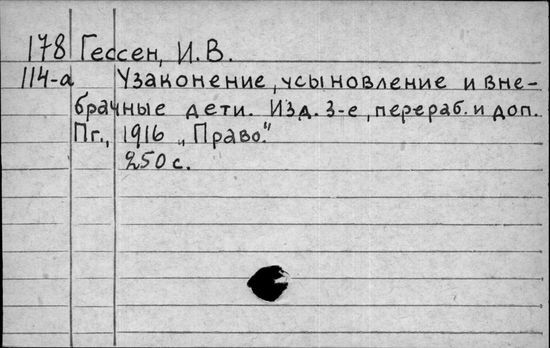 178 Гессен, И.В.
114-а Узаконение, усыновление и вне-
брачные дети. Изд. 3-е, перераб. и доп.
Пг., 1916 „Право."
250 с.